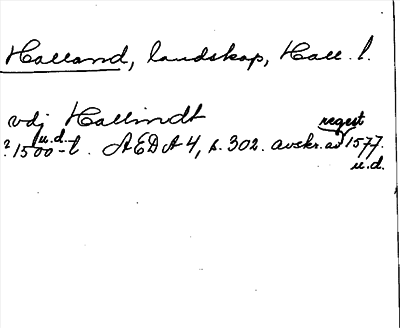 Halland, landskap, Hall. l.
vdj Hallindt
regest
u.d.
? 1500-t. ÆDA 4, s. 302. avskr. av 1577.
u.d.